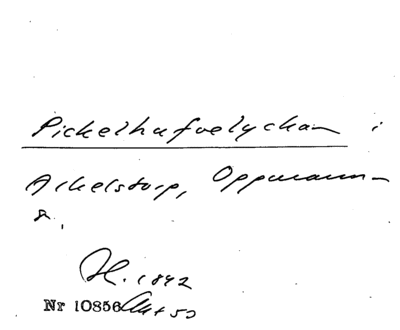 Pickelhufvelyckan i
Arkelstorp, Oppmanna
s.
H. 1842
Nr 10856 Akt 50